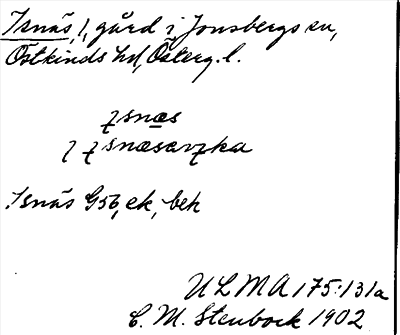 Isnäs, l, gård i Jonsbergs sn,
Östkinds hd, Österg. l.
ɪsnæs
Isnäs G56, ek, bek
ULMA 175:131a
C. M. Stenbock 1902